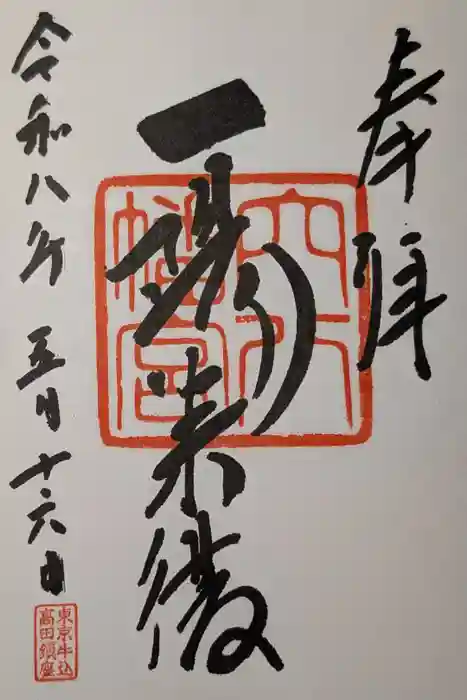 奉拝
一陽来復
穴八
幡宮
令和八年五月十六日
東京牛込
高田鎮座